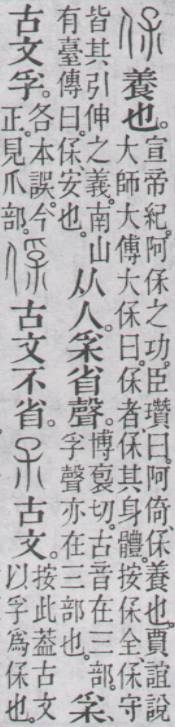 保養也。宣帝紀。阿保之功。臣瓚曰。阿、倚。保、養也。賈誼說大師大傅大保曰。保者、保其身體。按保全保守
皆其引伸之義。南山有臺傳曰。保、安也。从人。𤓽省聲。博裒切。古音在三部。孚聲亦在三部也。𤓽、
古文孚。各本誤。今正。見爪部。古文不省。古文。按此葢古文以孚爲保也。